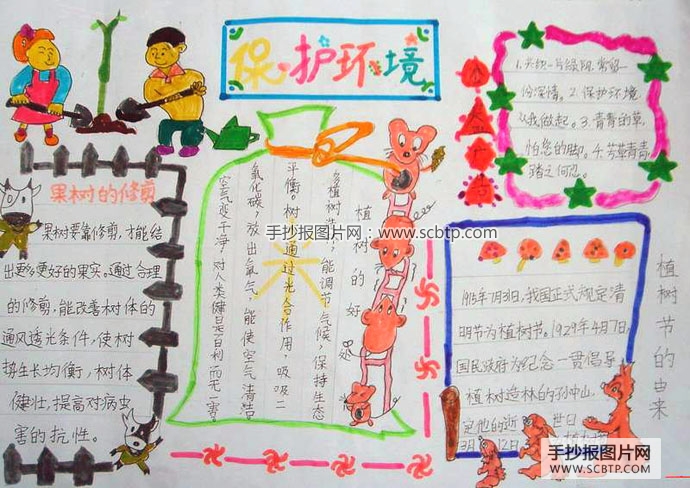 保护环境
一份深情。2.保护环境
从我做起。3.青青的草,
怕您的脚。4.芳草青青
踏之何忍。
果树的修剪
果树要靠修剪,才能结
出更多更好的果实。通过合理
的修剪,能改善树体的
通风透光条件,使树
生长均衡,树体
健壮,提高对病虫
害的抗性。
植树的好处
能调节气候,保持生态
平衡。树通过光合作用,吸吸二
氧化碳,放出氧气,能使空气清洁
空气变干净,对人类健是百利而无一害。
植树节的由来
1915年7月31日,我国正式规定清
明节为植树节。1929年4月7日,
国民政府为纪念一贯倡导
植树造林的孙中山,
定他的逝世日
3月12日
手抄报图片网:www.scbtp.com
手抄报图片网
WWW.SCBTP.COM